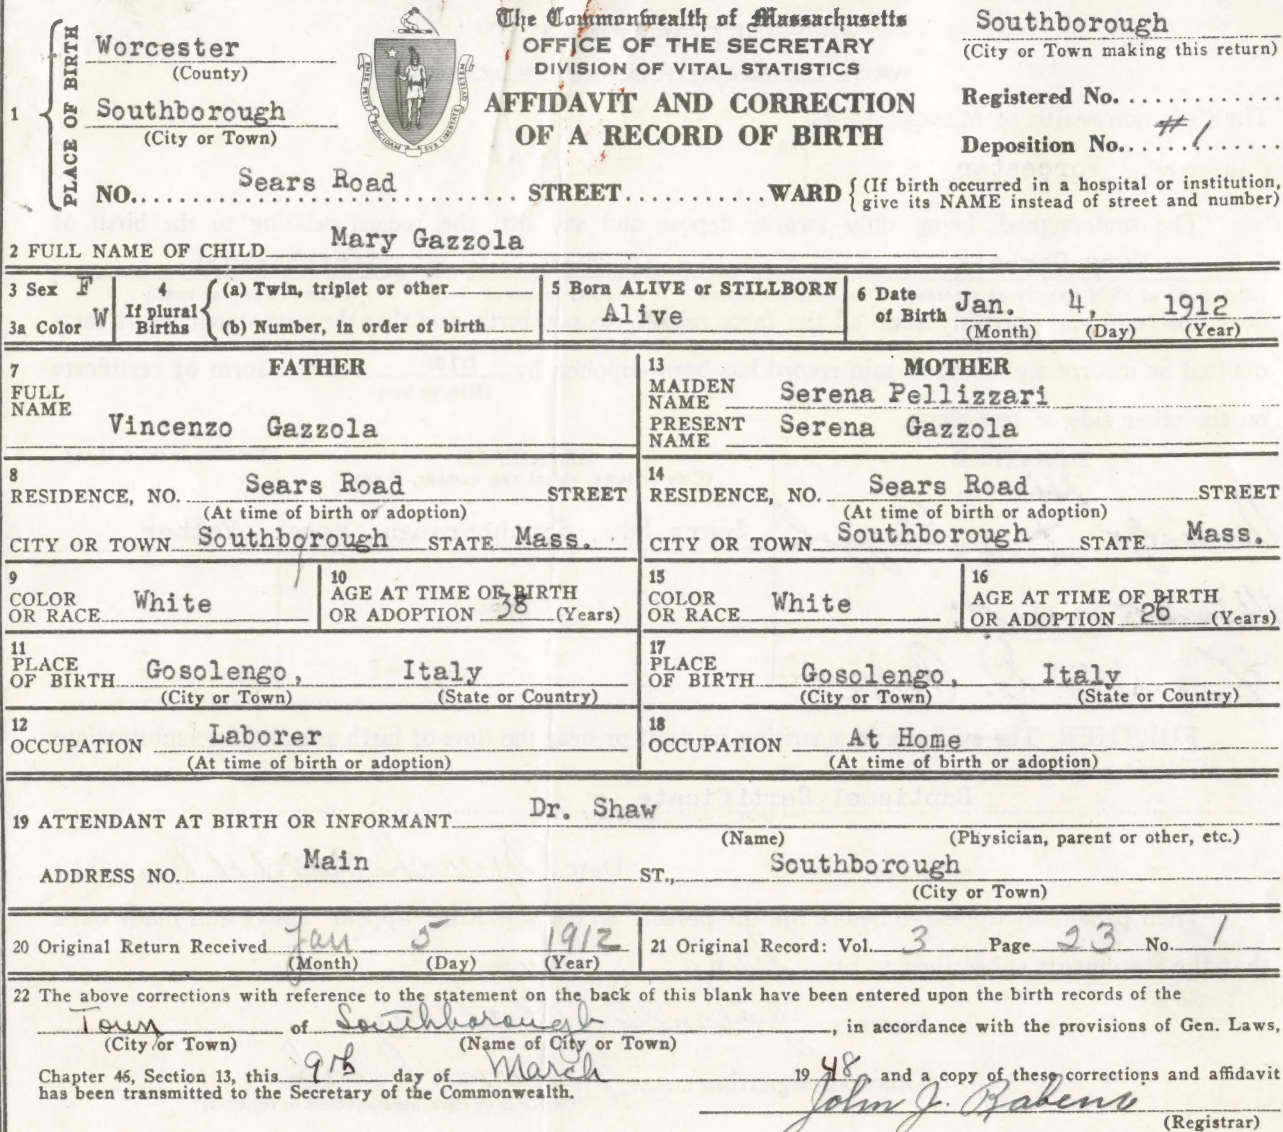 The Commonwealth of Massachusetts
OFFICE OF THE SECRETARY
DIVISION OF VITAL STATISTICS
AFFIDAVIT AND CORRECTION
OF A RECORD OF BIRTH
1 PLACE OF BIRTH
Worcester
(County)
Southborough
(City or Town)
Southborough
(City or Town making this return)
Registered No.
Deposition No. #1
NO. Sears Road STREET WARD { (If birth occurred in a hospital or institution, give its NAME instead of street and number)
2 FULL NAME OF CHILD Mary Gazzola
3 Sex F
3a Color W
4 If plural Births
(a) Twin, triplet or other
(b) Number, in order of birth
5 Born ALIVE or STILLBORN
Alive
6 Date of Birth Jan. 4, 1912
(Month) (Day) (Year)
FATHER
7 FULL NAME
Vincenzo Gazzola
8 RESIDENCE, NO. Sears Road STREET
(At time of birth or adoption)
CITY OR TOWN Southborough STATE Mass.
9 COLOR OR RACE White
10 AGE AT TIME OF BIRTH OR ADOPTION 38 (Years)
11 PLACE OF BIRTH Gosolengo, Italy
(City or Town) (State or Country)
12 OCCUPATION Laborer
(At time of birth or adoption)
MOTHER
13 MAIDEN NAME Serena Pellizzari
PRESENT NAME Serena Gazzola
14 RESIDENCE, NO. Sears Road STREET
(At time of birth or adoption)
CITY OR TOWN Southborough STATE Mass.
15 COLOR OR RACE White
16 AGE AT TIME OF BIRTH OR ADOPTION 26 (Years)
17 PLACE OF BIRTH Gosolengo, Italy
(City or Town) (State or Country)
18 OCCUPATION At Home
(At time of birth or adoption)
19 ATTENDANT AT BIRTH OR INFORMANT Dr. Shaw
(Name) (Physician, parent or other, etc.)
ADDRESS NO. Main ST., Southborough
(City or Town)
20 Original Return Received Jan 5 1912
(Month) (Day) (Year)
21 Original Record: Vol. 3 Page 23 No. 1
22 The above corrections with reference to the statement on the back of this blank have been entered upon the birth records of the
Town of Southborough, in accordance with the provisions of Gen. Laws,
(City or Town) (Name of City or Town)
Chapter 46, Section 13, this 9th day of March 1948 and a copy of these corrections and affidavit
has been transmitted to the Secretary of the Commonwealth.
John J.
(Registrar)